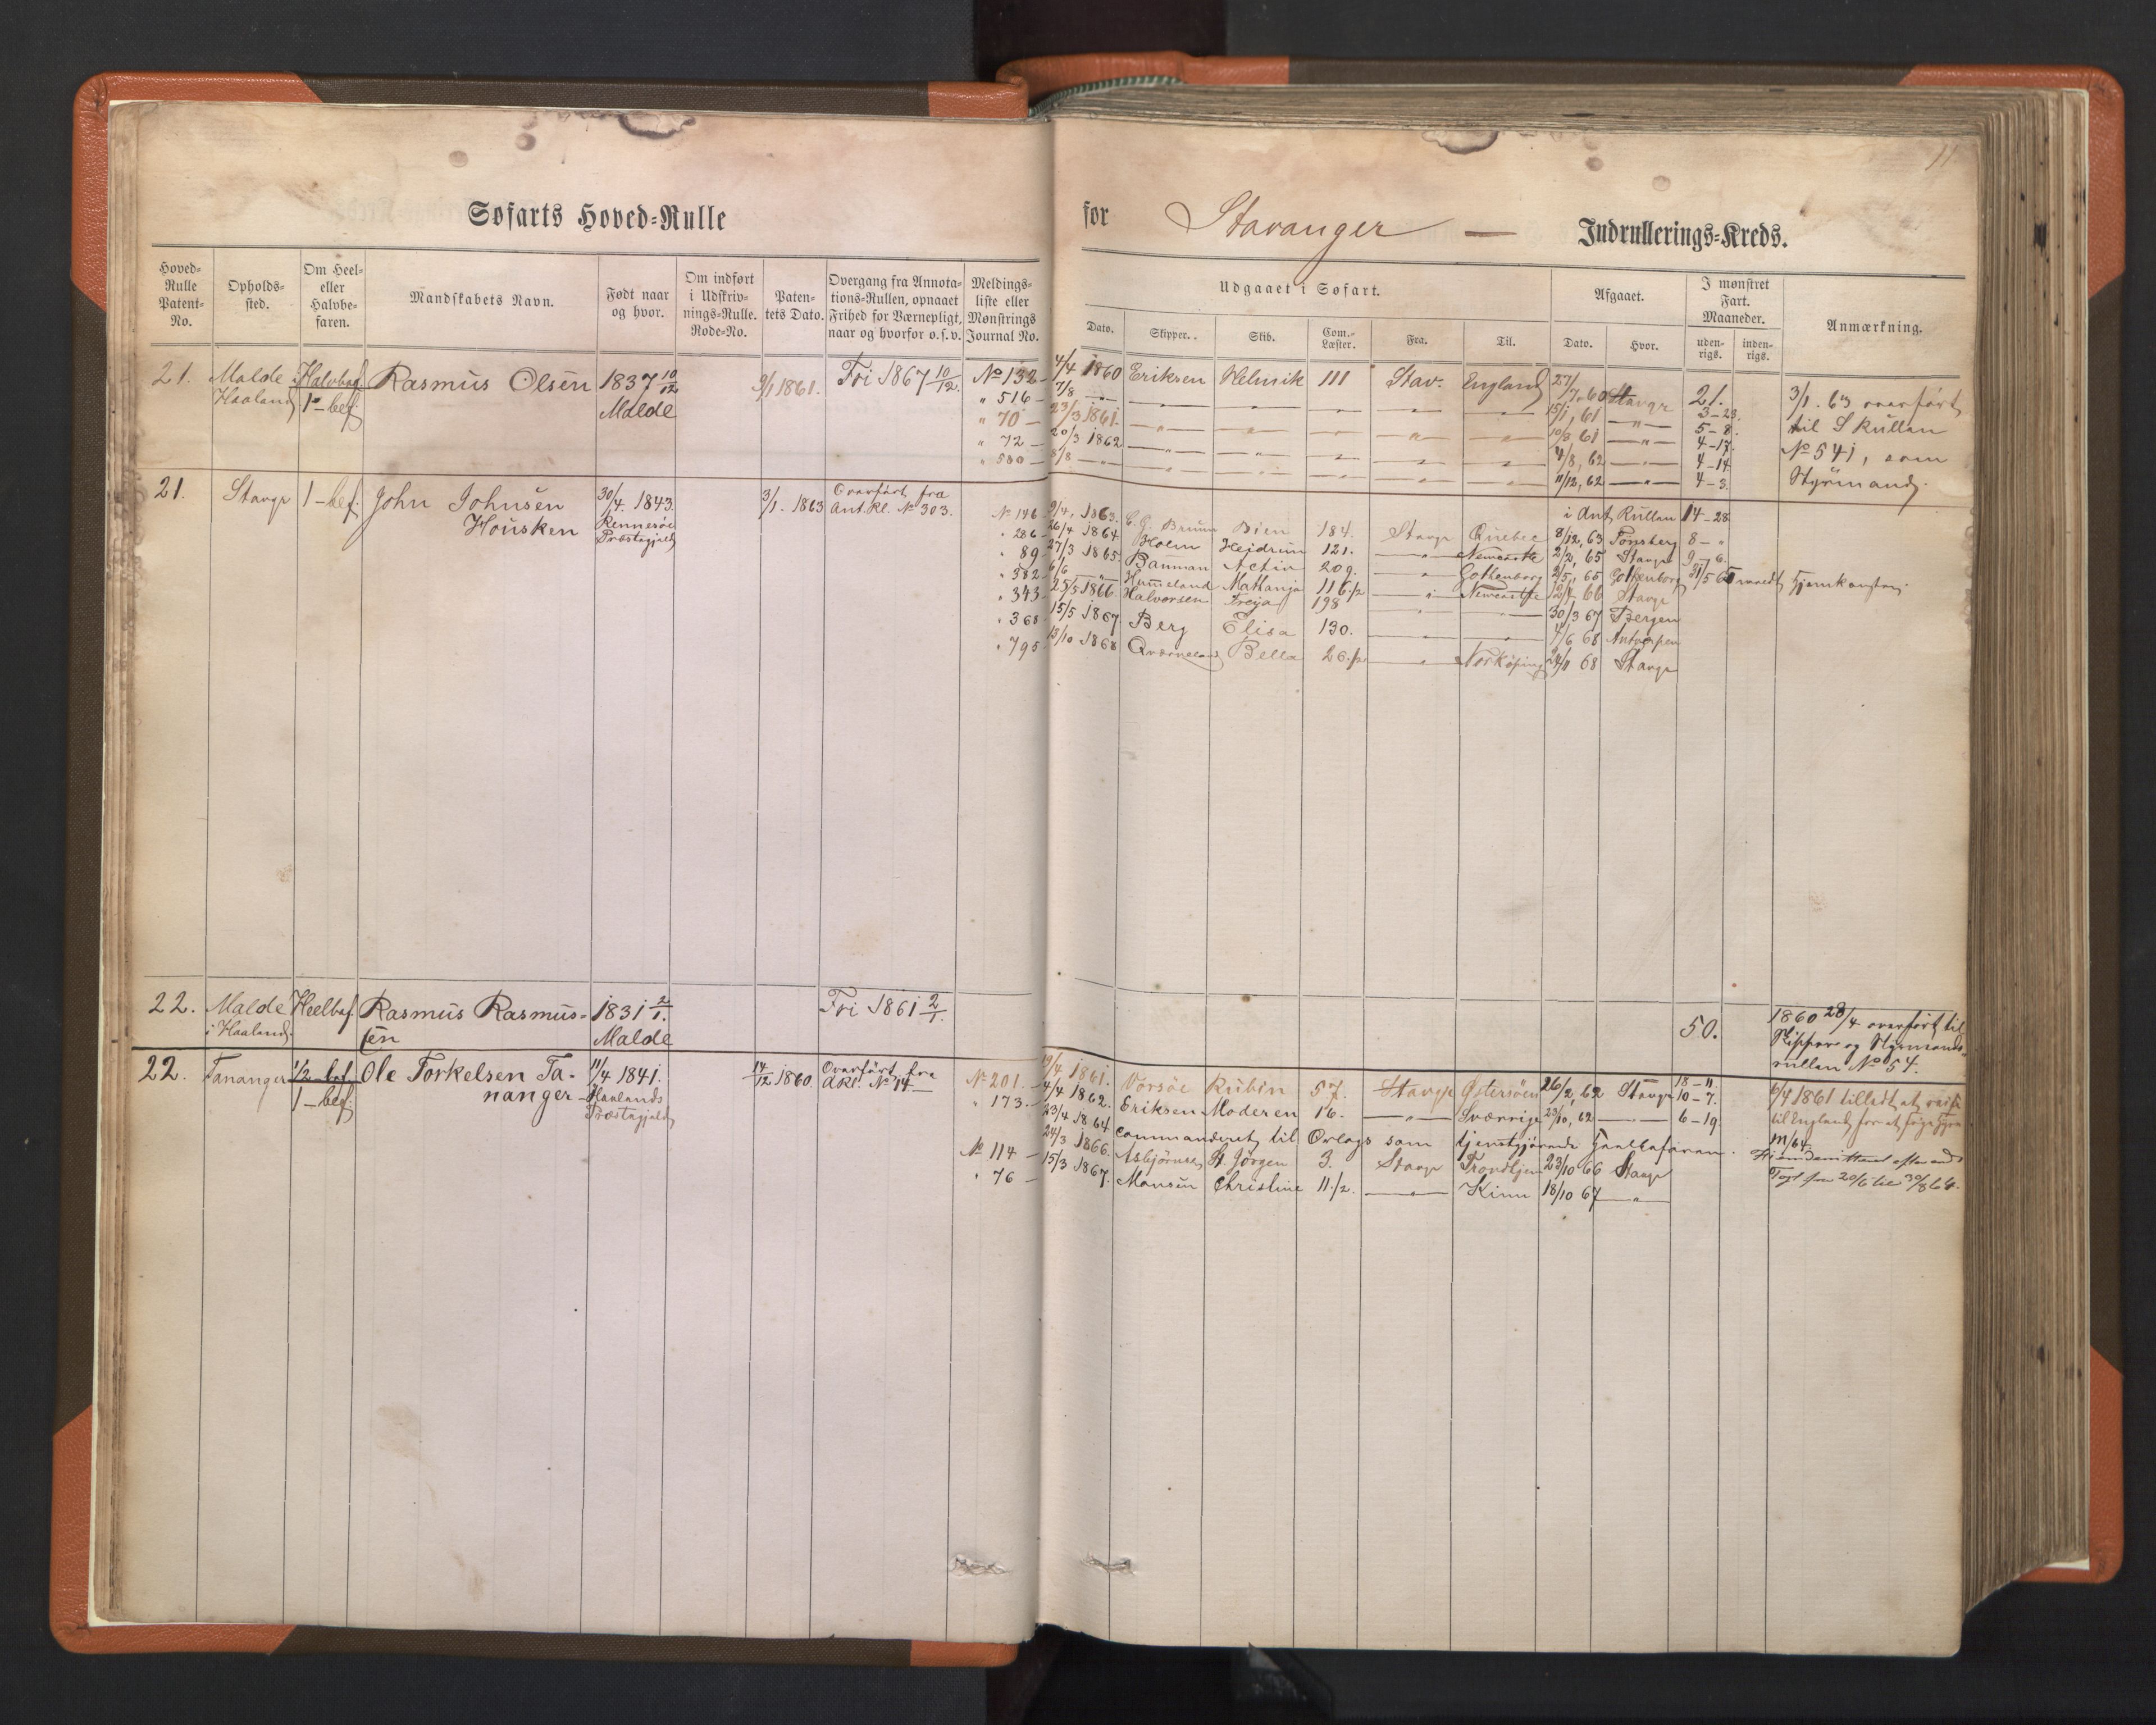 11
Søfarts Hoved=Rulle for Stavanger — Indrullerings=Kreds.
Hoved=Rulle Patent=No.
Opholds=sted.
Om Heel= eller Halvbe=faren.
Mandskabets Navn.
Født naar og hvor.
Om indført i Udskriv=nings=Rulle. Rode=No.
Paten=tets Dato.
Overgang fra Annota=tions=Rullen, opnaaet Frihed for Værnepligt, naar og hvorfor o.s.v.
Meldings=liste eller Mønstrings Journal No.
Udgaaet i Søfart.
Dato. Skipper. Skib. Com.=Læster. Fra. Til.
Afgaaet.
Dato. Hvor.
I mønstret Fart. Maaneder.
uden=rigs. inden=rigs.
Anmærkning.
21. Malde i Haaland Halvbef. 1-bef. Rasmus Olsen 1837 10/12 Malde 9/1 1861. Fri 1867 10/12.
No 132 - 4/4 1860 Eriksen Helmik 111 Stav. England 27/7, 60 Stavgr 21.
" 516 - 7/8 — 15/1, 61 — " — 3-23.
" 70 - 23/3 1861. — " — 10/8 61 — " — 5-8.
" 72 - 20/3 1862 — " — 4/8, 62 — " — 4-17.
" 580 - 8/8 — 11/12, 62 — " — 4-14
4-3.
3/1. 63 overført
til S Rullen
No 541, som
Styrmand.
21. Stavgr 1-bef. John Johnsen Housken 30/4. 1843. Rennesøe Præstegjeld 3/1. 1863 Overført fra Ant. Rl. No 303.
i Ant Rullen 14-28
No 146 9/4, 1863. C. G. Bruun Bien 184. Stavgr Quebec 8/12, 63 Tønsberg 8- "
" 286 - 26/4 1864 Holm Hejdrun 121. — " — Newcastle 2/2, 65 Stavgr 9-6.
" 89 - 27/3 1865 Bauman Actin 209. — " — Gothenborg 2/5, 65 Gothenborg 31/5 65 meldt Hjemkomsten.
" 382 - 6/6 — " — Hummeland Mathanja 116 1/2 — " — Newcastle 12/4 66 Stavgr
" 343 - 25/5 1866 Halvorsen Freija 198 — " — 30/3 67 Bergen
" 368 - 15/5 1867. Berg Elisa 130. — 4/6 68 Antverpen
" 795 - 13/10 1868 Qværneland Bella 26 1/2 — " — Norköping 24/11 68 Stavgr
22. Malde i Haaland. Heelbef. Rasmus Rasmus=sen 1831 2/1. Malde Fri 1861 2/1. 50.
1860 28/4 overført til
Skipper og Styrmands=
rullen No 54.
22. Tananger 1/2-bef. 1-bef. Ole Torkelsen Ta=nanger - 11/4 1841. Haalands Præstegjeld 14/12 1860. Overført fra A Rl. No 14 —
No 201. - 19/4 1861. Vorsøe Rubin 57. Stavgr Østersøen 26/2, 62 Stavgr 18-11 10-7.
" 173. - 4/4 1862. Eriksen Moderen 16. — " — Sverrige 23/10, 62 — 6-19
23/4 1864 Commanderet til Orlogs som tjenstgjørende Heelbefaren.
No 114 - 24/3 1866. Asbjørnsen St. Jørgen 3. Stavgr Trondhjem 23/10 66 Stavgr
" 76 - 15/3 1867. Monsen Christine 11 1/2. — " — Kinn 18/10 67 — " —
6/4 1861 tilladt at reise
til England for at søge Hyre
Hjemdimitteret efter endt
Togt fra 20/6 til 30/8 64.